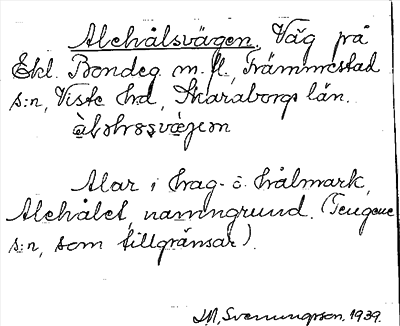 Alehålsvägen. Väg på
Ekl. Bondeg. m. fl., Främmestad
s:n, Viste hd, Skaraborgs län.

Alar i hag- o. hålmark,
Alehålet, namngrund. (Tengene
s:n, som tillgränsar).
J.M. Svenungsson. 1939.